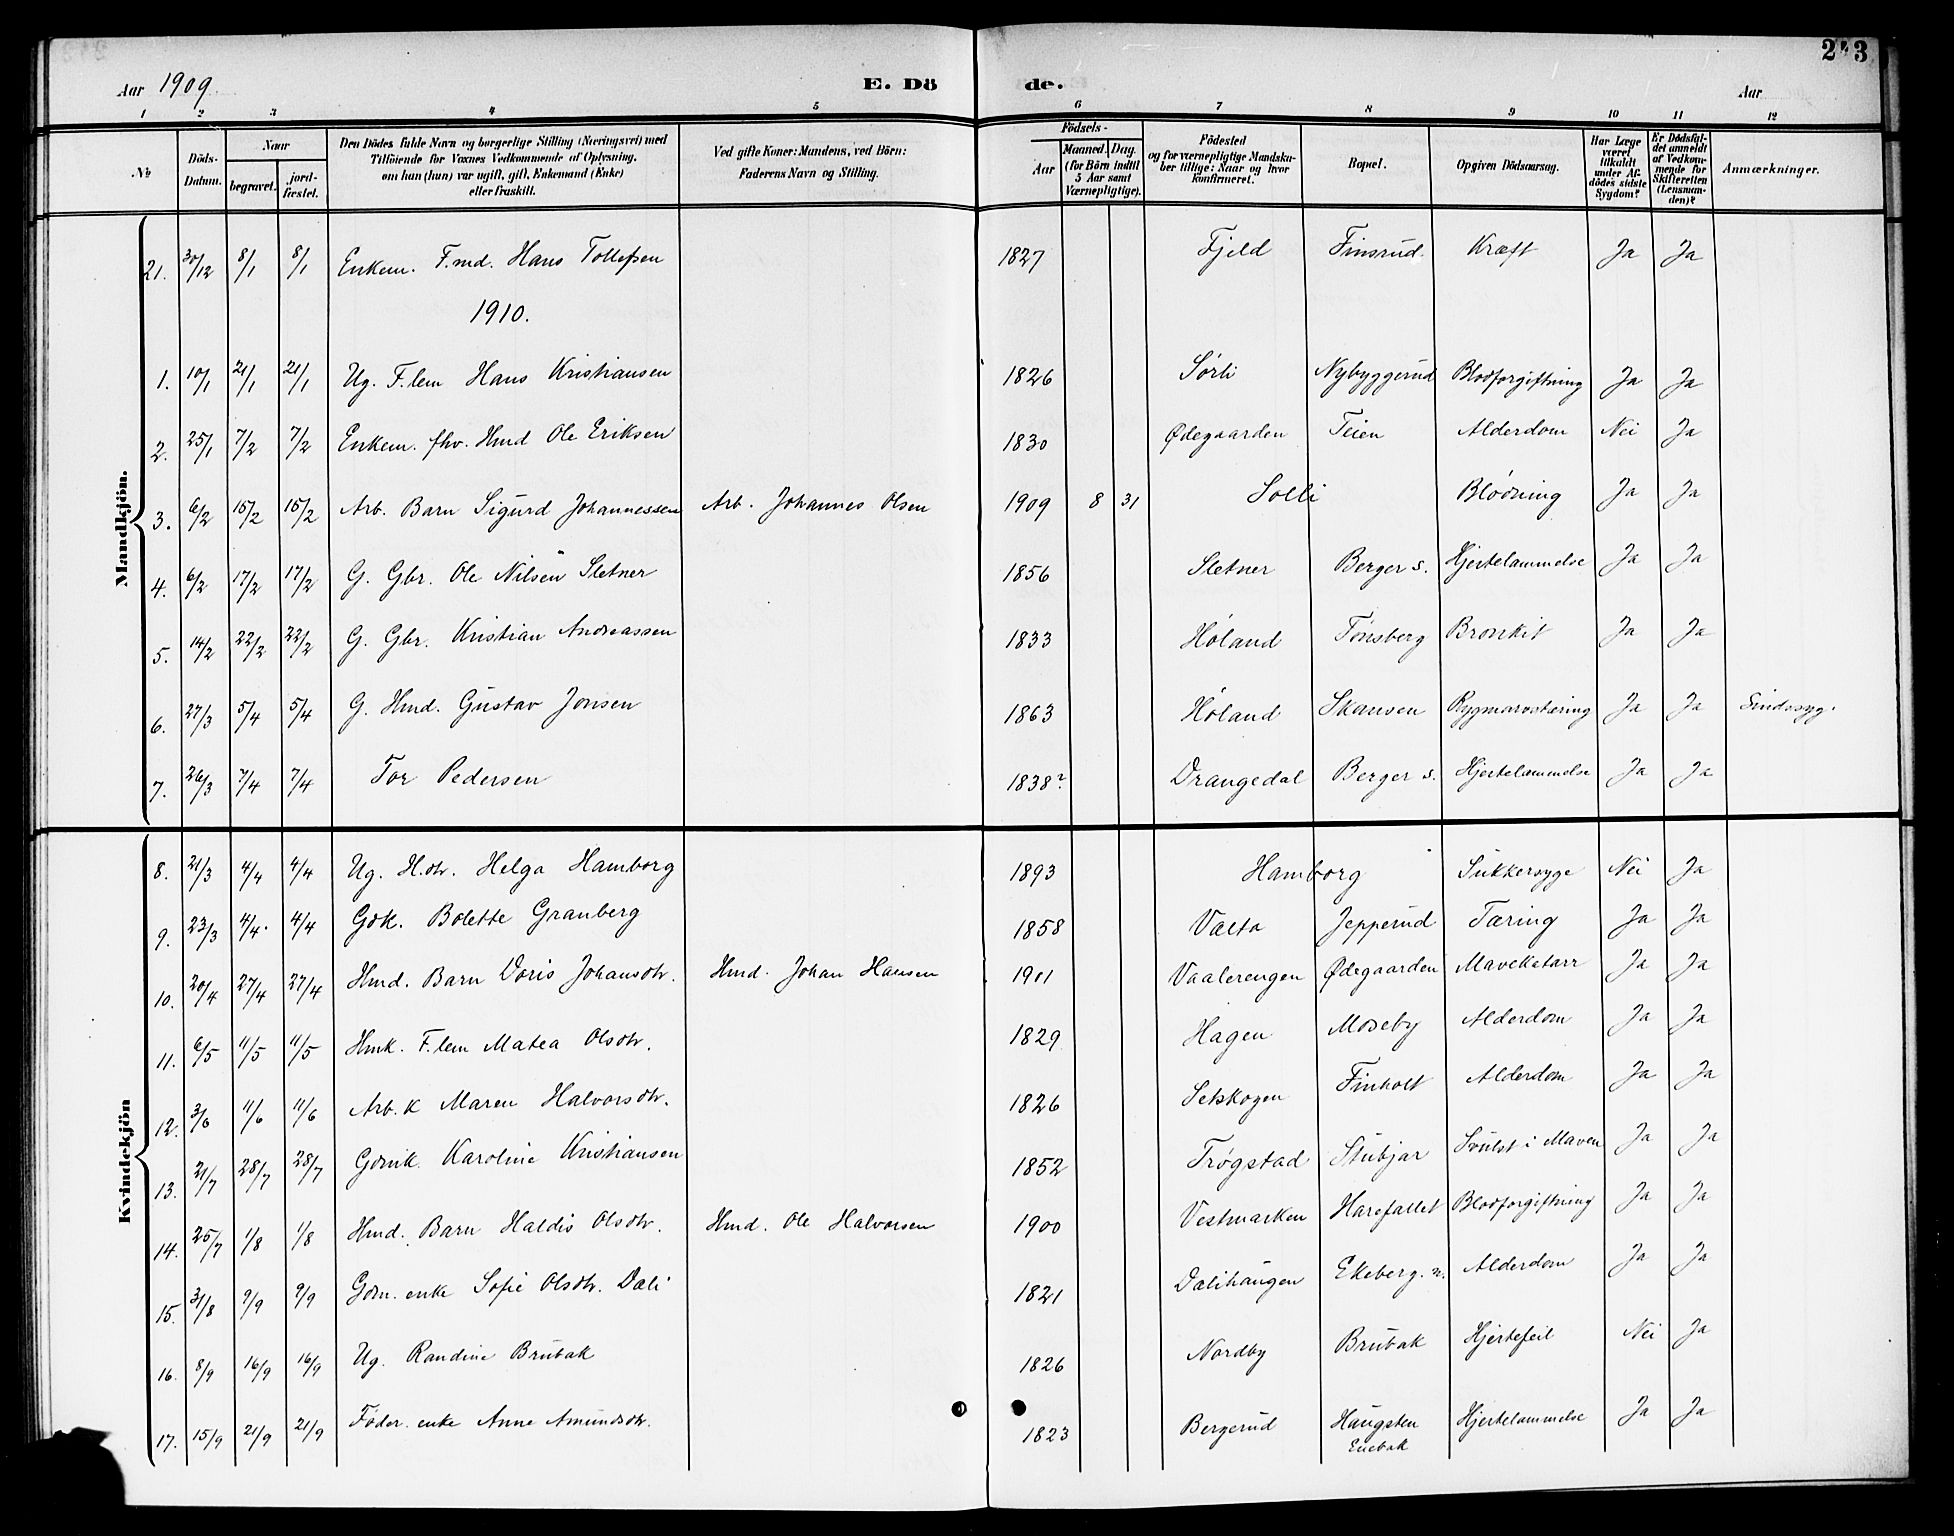 243
Aar 1909. E. Dö de. Aar
1 2 3 4 5 6 7 8 9 10 11 12
No Döds-Datum. Naar begravet. jord-fæstet. Den Dödes fulde Navn og borgerlige Stilling (Næringsvei) med Tilföiende for Voxnes Vedkommende af Oplysning, om han (hun) var ugift, gift, Enkemand (Enke) eller fraskilt. Ved gifte Koner: Mandens, ved Börn: Faderens Navn og Stilling. Födsels- Aar Maaned. Dag. (for Börn indtil 5 Aar samt Værnepligtige). Födested og for værnepligtige Mandskaber tillige: Naar og hvor konfirmeret. Bopæl. Opgiven Dödsaarsag. Har Læge været tilkaldt under Afdödes sidste Sygdom? Er Dödsfaldet anmeldt af Vedkommende for Skifteretten (Lensmanden)? Anmærkninger.
Mandkjön.
21. 30/12 8/1 8/1 Enkem. F.md. Hans Tollefsen 1827 Fjeld Finsrud. Kræft Ja Ja
1910.
1. 10/1 21/1 21/1 Ug. F.lem Hans Kristiansen 1826 Sørli Nybyggerud Blodforgiftning Ja Ja
2. 25/1 7/2 7/2 Enkem. fhv. Hmd Ole Eriksen 1830 Ødegaarden Teien Alderdom Nei Ja
3. 6/2 15/2 15/2 Arb. Barn Sigurd Johannessen Arb. Johannes Olsen 1909 8 31 Solli Blødning Ja Ja
4. 6/2 17/2 17/2 G. Gbr. Ole Nilsen Sletner 1856 Sletner Berger s. Hjertelammelse Ja Ja
5. 14/2 22/2 22/2 G. Gbr. Kristian Andreassen 1833 Høland Tønsberg Bronkit Ja Ja
6. 27/3 5/4 5/4 G. Hmd. Gustav Jonsen 1863 Høland Skansen Rygmarvstæring Ja Ja Sindssyg.
7. 26/3 7/4 7/4 Tor Pedersen 1838? Drangedal Berger s. Hjertelammelse Ja Ja
Kvindekjön
8. 21/3 4/4 4/4 Ug. H.dtr. Helga Hamborg 1893 Hamborg Sukkersyge Nei Ja
9. 23/3 4/4. 4/4 Gdk. Bolette Granberg 1858 Valta Jepperud Tæring Ja Ja
10. 20/4 27/4 27/4 Hmd. Barn Doris Johansdtr. Hmd. Johan Hansen 1901 Vaalerengen Ødegaarden Mavekatarr Ja Ja
11. 6/5 11/5 11/5 Hmk. F.lem Matea Olsdtr. 1829 Hagen Moseby Alderdom Ja Ja
12. 3/6 11/6 11/6 Arb. k Maren Halvorsdtr. 1826 Setskogen Finholt Alderdom Ja Ja
13. 21/7 28/7 28/7 Gdmk. Karoline Kristiansen 1852 Trøgstad Stubjar Svulst i Maven Ja Ja
14. 25/7 1/8 1/8 Hmd. Barn Haldis Olsdtr. Hmd. Ole Halvorsen 1900 Vestmarken Harefallet Blodforgiftning Ja Ja
15. 31/8 9/9 9/9 Gdm. enke Sofie Olsdtr. Dali 1821 Dalihaugen Ekeberg. n. Alderdom Ja Ja
16. 8/9 16/9 16/9 Ug. Randine Brubak 1826 Nordby Brubak Hjertefeil Nei Ja
17. 15/9 21/9 21/9 Føder. enke Anne Amundsdtr. 1823 Bergerud Haugsten Enebak Hjertelammelse Ja Ja